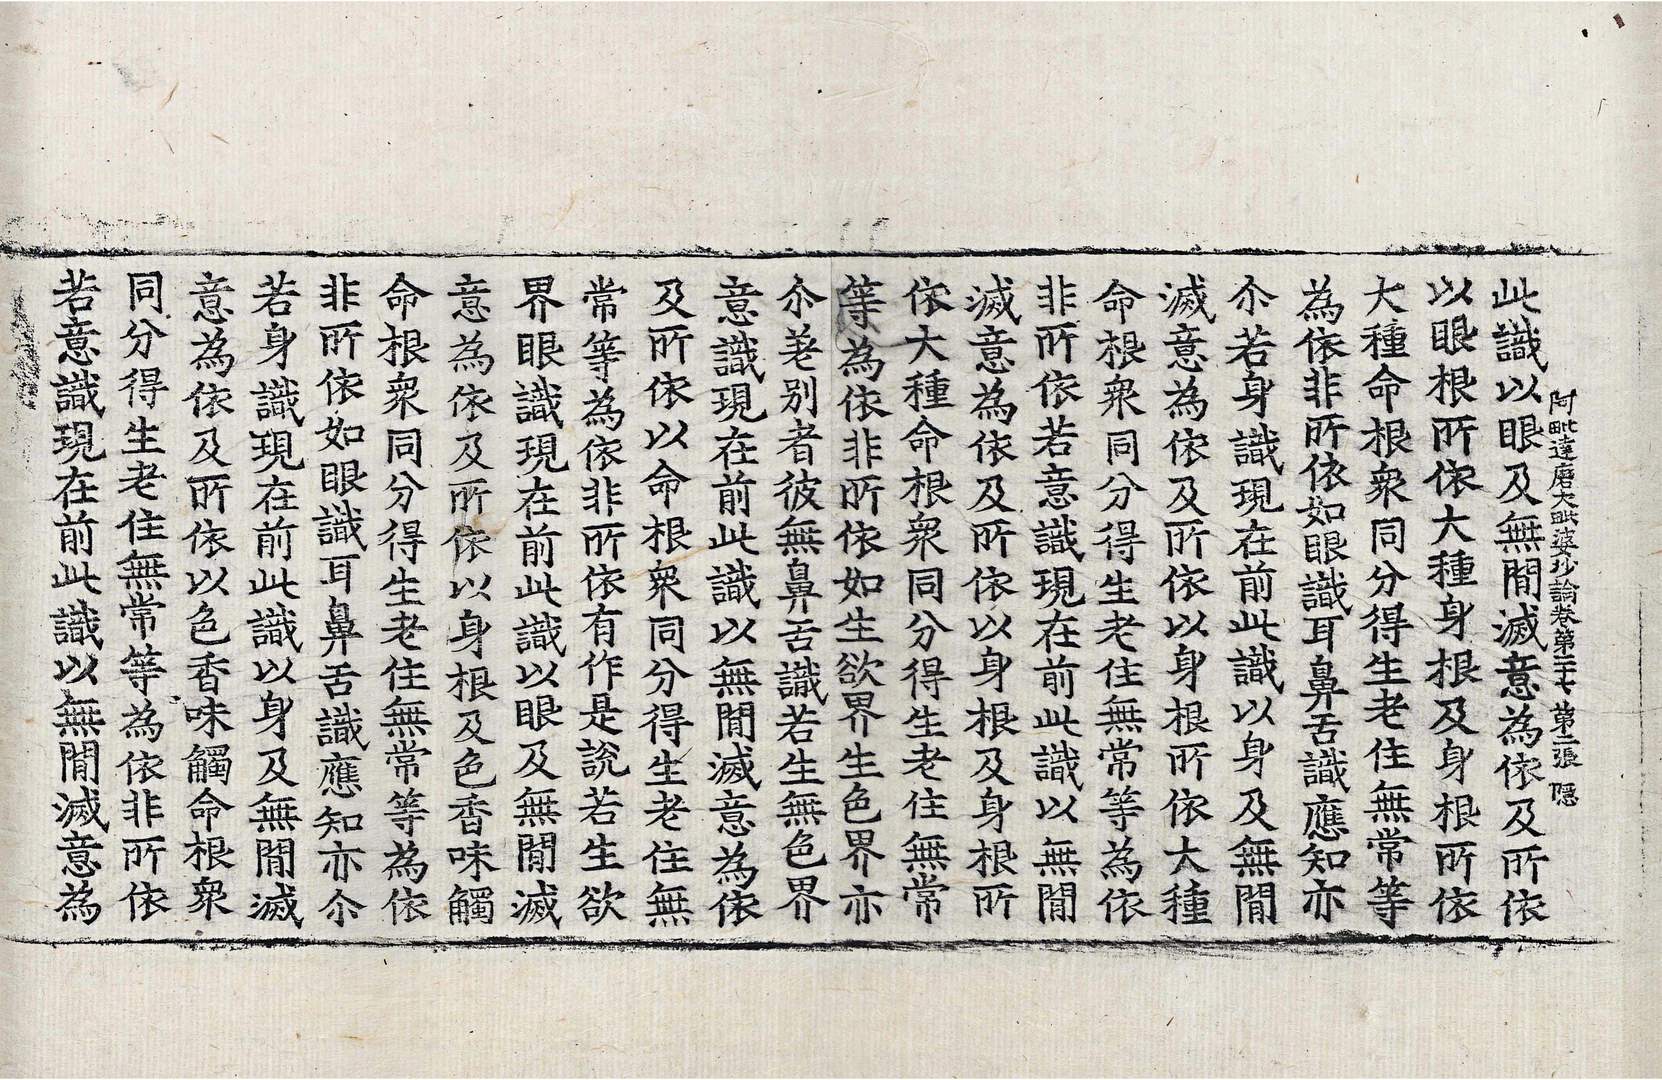 阿毗達磨大毗婆沙論卷第三十七 第二張 隱
此識以眼及無閒滅意為依及所依
以眼根所依大種身根及身根所依
大種命根衆同分得生老住無常等
為依非所依如眼識耳鼻舌識應知亦
尒若身識現在前此識以身及無閒
滅意為依及所依以身根所依大種
命根衆同分得生老住無常等為依
非所依若意識現在前此識以無閒
滅意為依及所依以身根及身根所
依大種命根衆同分得生老住無常
等為依非所依如生欲界生色界亦
尒差別者彼無鼻舌識若生無色界
意識現在前此識以無閒滅意為依
及所依以命根衆同分得生老住無
常等為依非所依有作是說若生欲
界眼識現在前此識以眼及無閒滅
意為依及所依以身根及色香味觸
命根衆同分得生老住無常等為依
非所依如眼識耳鼻舌識應知亦尒
若身識現在前此識以身及無閒滅
意為依及所依以色香味觸命根衆
同分得生老住無常等為依非所依
若意識現在前此識以無閒滅意為